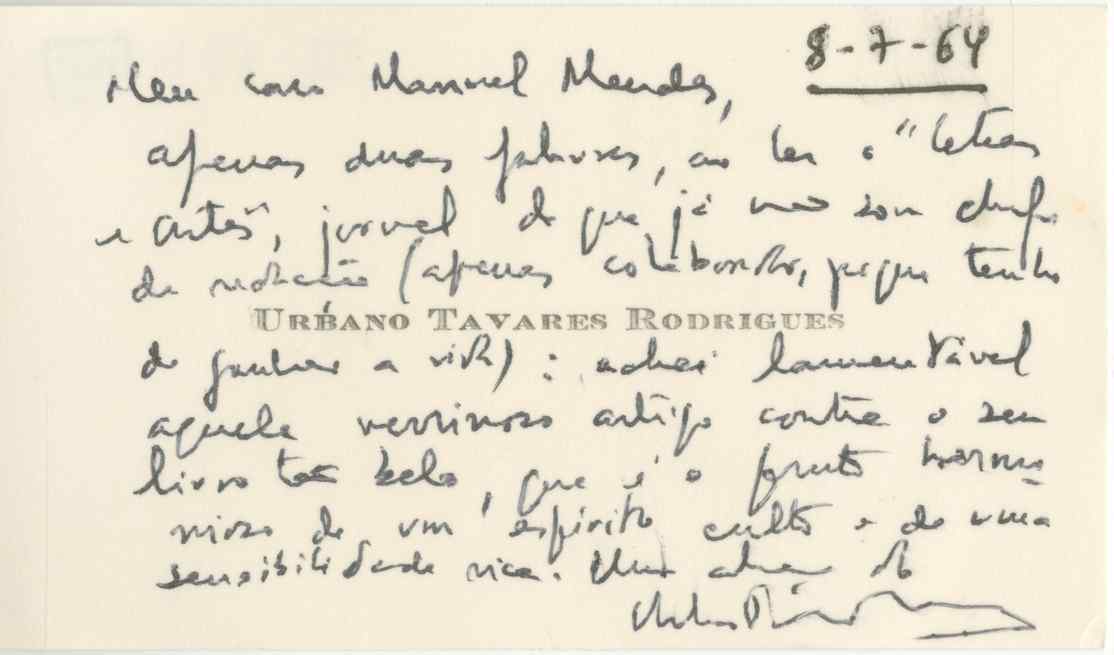 8-7-64
Meu caro Manuel Mendes,
apenas duas palavras, ao ler o "Letras
e Artes", jornal de que já não sou chefe
de redacção (apenas colaborador, porque tenho
URBANO TAVARES RODRIGUES
de ganhar a vida) : achei lamentável
aquele verrinoso artigo contra o seu
livro tão belo, que é o fruto harmo-
nioso de um espírito culto e de uma
sensibilidade rica. Um abraço do
Urbano